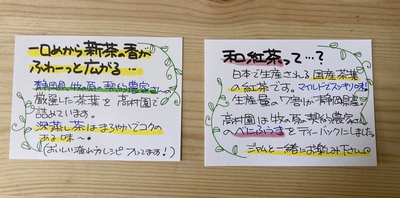 一口めから新茶の香が
ふわーっと広がる…
静岡県牧の原の契約農家さんの
厳選した茶葉を高村園で
詰めています。
深蒸し茶はまろやかでコクの
ある味〜。
(おいしい淹れ方レシピ入ってます!)
和紅茶って…?
日本で生産される国産茶葉
の紅茶です。マイルドでスッキリ味!
生産量の 割が静岡県産
高村園は牧の原の契約農家さん
のべにふうきをティーバックにしました。
ジャムと一緒にお楽しみ下さい